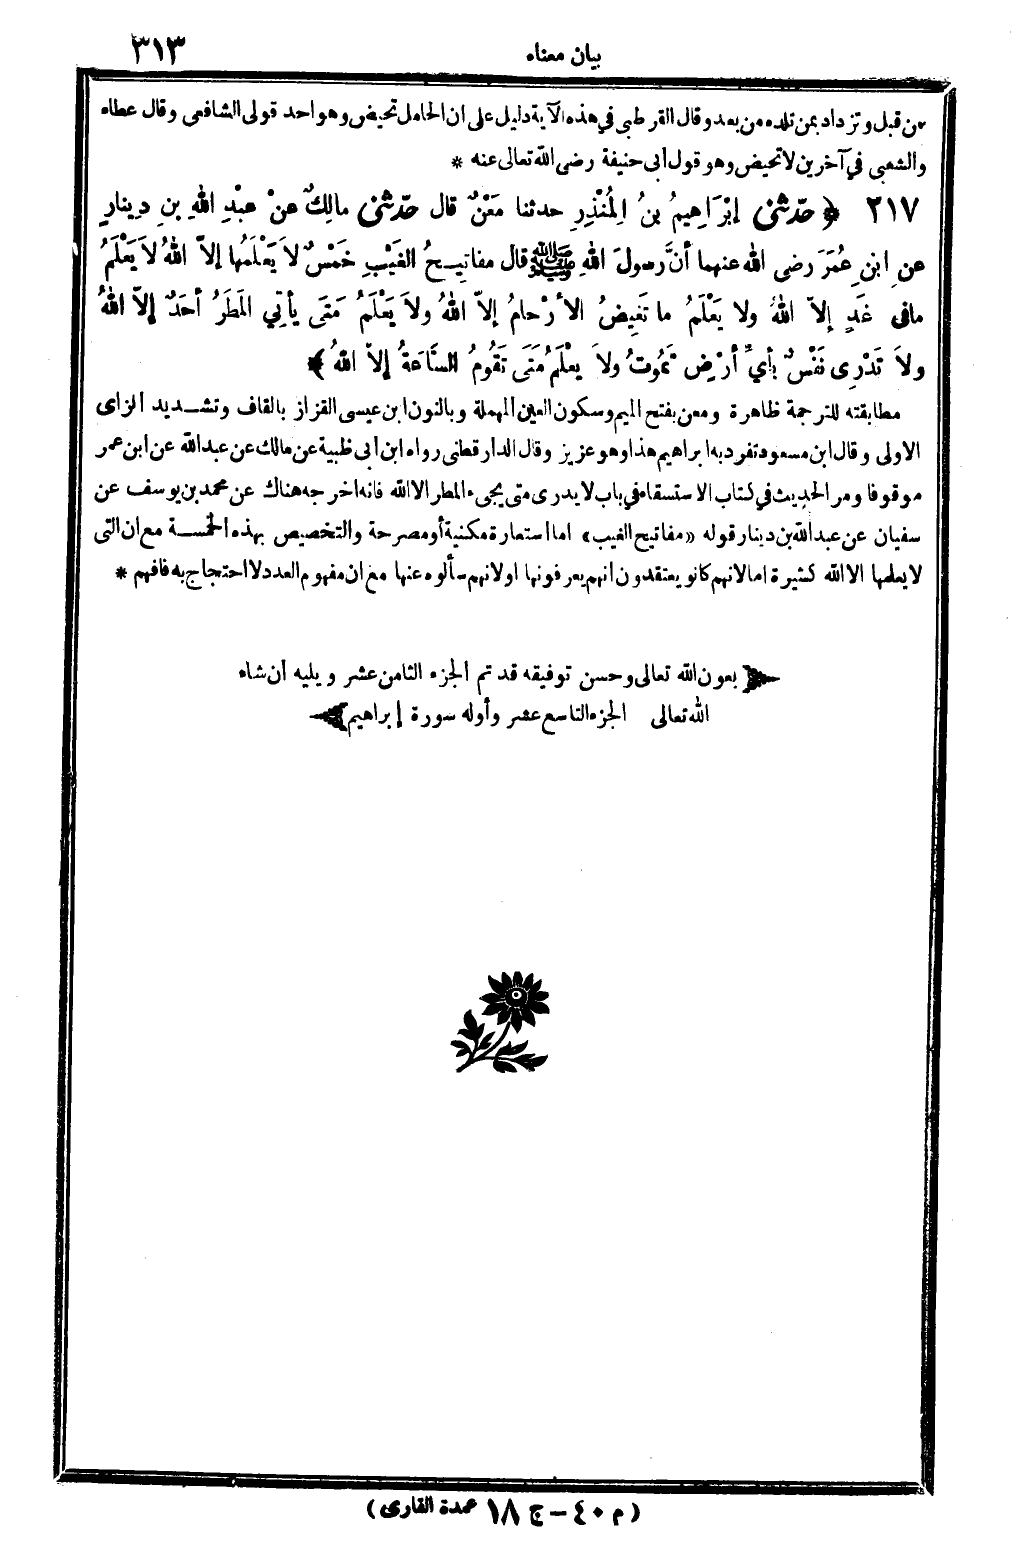 بيان معناه ٣١٣
من قبل وتزداد بمن تلده من بعد وقال القرطبي في هذه الآية دليل على ان الحامل تحيض وهو احد قولى الشافعى وقال عطاء
والشعبى في آخرين لا تحيض وهو قول أبى حنيفة رضى الله تعالى عنه *
٢١٧ ﴿ حدّثنى إبْرَاهِيمُ بنُ المُنْذِرِ حدثنا مَعْنٌ قال حدّثنى مالِكٌ عنْ عبْدِ اللهِ بنِ دِينارٍ
عنِ ابنِ عُمَرَ رضى الله عنهما أنَّ رسولَ اللهِ ﷺ قال مفاتِيحُ الغَيْبِ خَمْسٌ لاَ يَعْلَمُها إلاّ اللهُ لاَ يَعْلَمُ
مافى غَدٍ إلاّ اللهُ ولا يَعْلَمُ ما تَغِيضُ الأَرْحامُ إلاّ اللهُ ولاَ يَعْلَمُ مَتَى يأتِي المَطَرُ أحَدٌ إلاّ اللهُ
ولاَ تَدْرِى نَفْسٌ بأيِّ أرْضٍ تَمُوتُ ولاَ يعْلَمُ مَتَى تَقُومُ السَّاعَةُ إلاّ اللهُ ﴾
مطابقته للترجمة ظاهرة ومعن بفتح الميم وسكون العين المهملة وبالنون ابن عيسى القزاز بالقاف وتشديد الزاى
الاولى وقال ابن مسعود تفرد به ابراهيم هذا وهو عزيز وقال الدارقطنى رواه ابن ابى ظبية عن مالك عن عبدالله عن ابن عمر
موقوفا ومر الحديث في كتاب الاستسقاء في باب لا يدرى متى يجىء المطر الا الله فانه اخرجه هناك عن محمد بن يوسف عن
سفيان عن عبدالله بن دينار قوله «مفاتيح الغيب» اما استعارة مكنية أو مصرحة والتخصيص بهذه الخمسة مع ان التى
لا يعلمها الا الله كثيرة اما لانهم كانو يعتقدون انهم يعرفونها اولانهم سألوه عنها مع ان مفهوم العدد لا احتجاج به فافهم *
بعون الله تعالى وحسن توفيقه قد تم الجزء الثامن عشر ويليه ان شاء
الله تعالى الجزء التاسع عشر وأوله سورة إبراهيم
(م ٤٠ – ج ١٨ عمدة القارى)